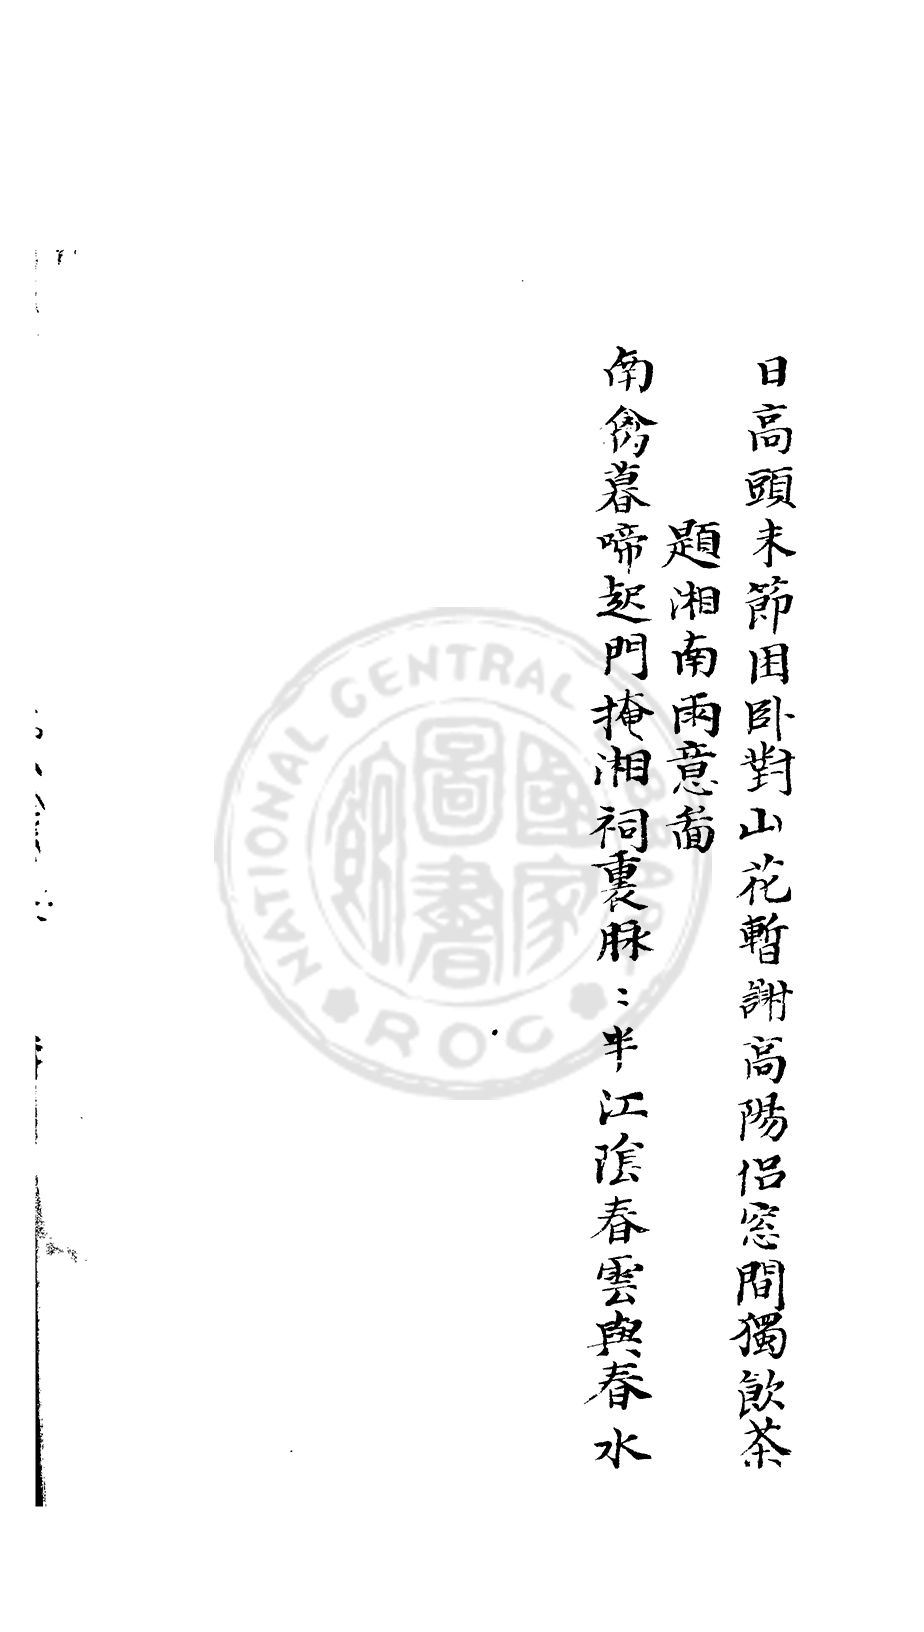 日高頭未節困卧對山花暫謝高陽侶窓間獨飲茶
題湘南雨意啚
南禽暮啼起門掩湘祠裏脉〻半江陰春雲與春水
NATIONAL CENTRAL
ROC
國家圖書